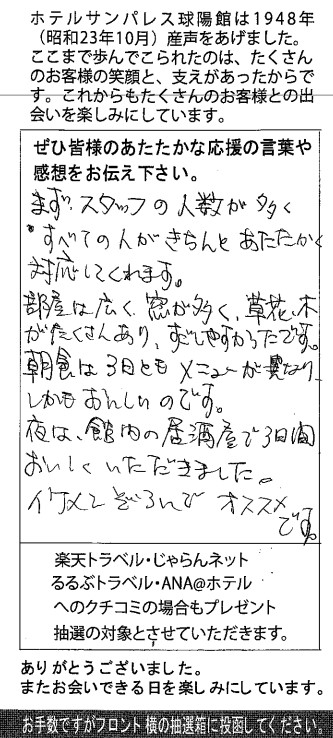 ホテルサンパレス球陽館は1948年
（昭和23年10月）産声をあげました。
ここまで歩んでこられたのは、たくさん
のお客様の笑顔と、支えがあったからで
す。これからもたくさんのお客様との出
会いを楽しみにしています。
ぜひ皆様のあたたかな応援の言葉や
感想をお伝え下さい。
まず、スタッフの人数が多く
すべての人がきちんとあたたかく
対応してくれます。
部屋は広く、窓が多く、草花、木
がたくさんあり、すごしやすかったです。
朝食は3日ともメニューが異なり
しかもおいしいのです。
夜は、館内の居酒屋で3日間
おいしくいただきました。
イケメンぞろいで オススメ
です。
楽天トラベル・じゃらんネット
るるぶトラベル・ANA@ホテル
へのクチコミの場合もプレゼント
抽選の対象とさせていただきます。
ありがとうございました。
またお会いできる日を楽しみにしています。
お手数ですがフロント横の抽選箱に投函してください。